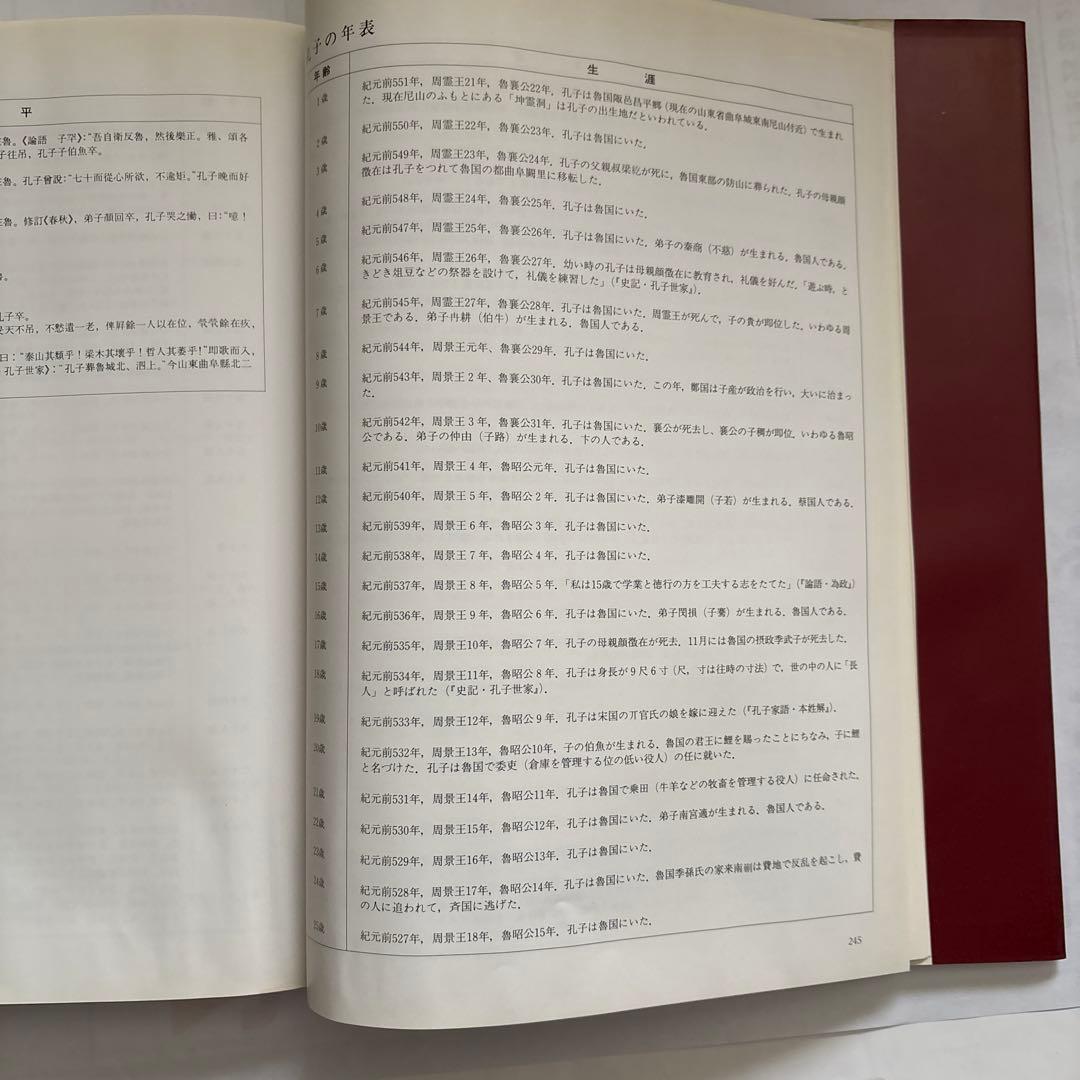 平
魯。《論語 子罕》：“吾自衛反魯，然後樂正。雅、頌各
子往吊，孔子子伯魚卒。
魯。孔子曾說：“七十而從心所欲，不逾矩。”孔子晚而好
魯。修訂《春秋》，弟子顏回卒，孔子哭之慟，曰：“噫！
孔子卒。
旻天不吊，不慭遺一老，俾屛餘一人以在位，煢煢餘在疚，
曰：“泰山其頹乎！梁木其壞乎！哲人其萎乎！”即歌而入，
孔子世家》：“孔子葬魯城北、泗上。”今山東曲阜縣北二
孔子の年表
年齢 生涯
1歳 紀元前551年，周霊王21年，魯襄公22年，孔子は魯国陬邑昌平郷（現在の山東省曲阜城東南尼山付近）で生まれ
た．現在尼山のふもとにある「坤霊洞」は孔子の出生地だといわれている．
2歳 紀元前550年，周霊王22年，魯襄公23年．孔子は魯国にいた．
3歳 紀元前549年，周霊王23年，魯襄公24年．孔子の父親叔梁紇が死に，魯国東部の防山に葬られた．孔子の母親顔
徴在は孔子をつれて魯国の都曲阜闕里に移転した．
4歳 紀元前548年，周霊王24年，魯襄公25年．孔子は魯国にいた．
5歳 紀元前547年，周霊王25年，魯襄公26年．孔子は魯国にいた．弟子の秦商（不慈）が生まれる．魯国人である．
6歳 紀元前546年，周霊王26年，魯襄公27年．幼い時の孔子は母親顔徴在に教育され，礼儀を好んだ．「遊ぶ時，と
きどき俎豆などの祭器を設けて，礼儀を練習した」（『史記・孔子世家』）．
7歳 紀元前545年，周霊王27年，魯襄公28年．孔子は魯国にいた．周霊王が死んで，子の貴が即位した．いわゆる周
景王である．弟子冉耕（伯牛）が生まれる．魯国人である．
8歳 紀元前544年，周景王元年、魯襄公29年．孔子は魯国にいた．
9歳 紀元前543年，周景王2年、魯襄公30年．孔子は魯国にいた．この年，鄭国は子産が政治を行い，大いに治まっ
た．
10歳 紀元前542年，周景王3年，魯襄公31年．孔子は魯国にいた．襄公が死去し、襄公の子稠が即位．いわゆる魯昭
公である．弟子の仲由（子路）が生まれる．卞の人である．
11歳 紀元前541年，周景王4年，魯昭公元年．孔子は魯国にいた．
12歳 紀元前540年，周景王5年，魯昭公2年．孔子は魯国にいた．弟子漆雕開（子若）が生まれる．蔡国人である．
13歳 紀元前539年，周景王6年，魯昭公3年．孔子は魯国にいた．
14歳 紀元前538年，周景王7年，魯昭公4年，孔子は魯国にいた．
15歳 紀元前537年，周景王8年，魯昭公5年．「私は15歳で学業と徳行の方を工夫する志をたてた」（『論語・為政』）
16歳 紀元前536年，周景王9年，魯昭公6年，孔子は魯国にいた．弟子閔損（子騫）が生まれる．魯国人である．
17歳 紀元前535年，周景王10年，魯昭公7年．孔子の母親顔徴在が死去．11月には魯国の摂政季武子が死去した．
18歳 紀元前534年，周景王11年，魯昭公8年．孔子は身長が9尺6寸（尺，寸は往時の寸法）で，世の中の人に「長
人」と呼ばれた（『史記・孔子世家』）．
19歳 紀元前533年，周景王12年，魯昭公9年．孔子は宋国の亓官氏の娘を嫁に迎えた（『孔子家語・本姓解』）．
20歳 紀元前532年，周景王13年，魯昭公10年，子の伯魚が生まれる．魯国の君王に鯉を賜ったことにちなみ，子に鯉
と名づけた．孔子は魯国で委吏（倉庫を管理する位の低い役人）の任に就いた．
21歳 紀元前531年，周景王14年，魯昭公11年．孔子は魯国で乗田（牛羊などの牧畜を管理する役人）に任命された．
22歳 紀元前530年，周景王15年，魯昭公12年，孔子は魯国にいた．弟子南宮适が生まれる．魯国人である．
23歳 紀元前529年，周景王16年，魯昭公13年．孔子は魯国にいた．
24歳 紀元前528年，周景王17年，魯昭公14年．孔子は魯国にいた．魯国季孫氏の家来南蒯は費地で反乱を起こし，費
の人に追われて，斉国に逃げた．
25歳 紀元前527年，周景王18年，魯昭公15年．孔子は魯国にいた．
245